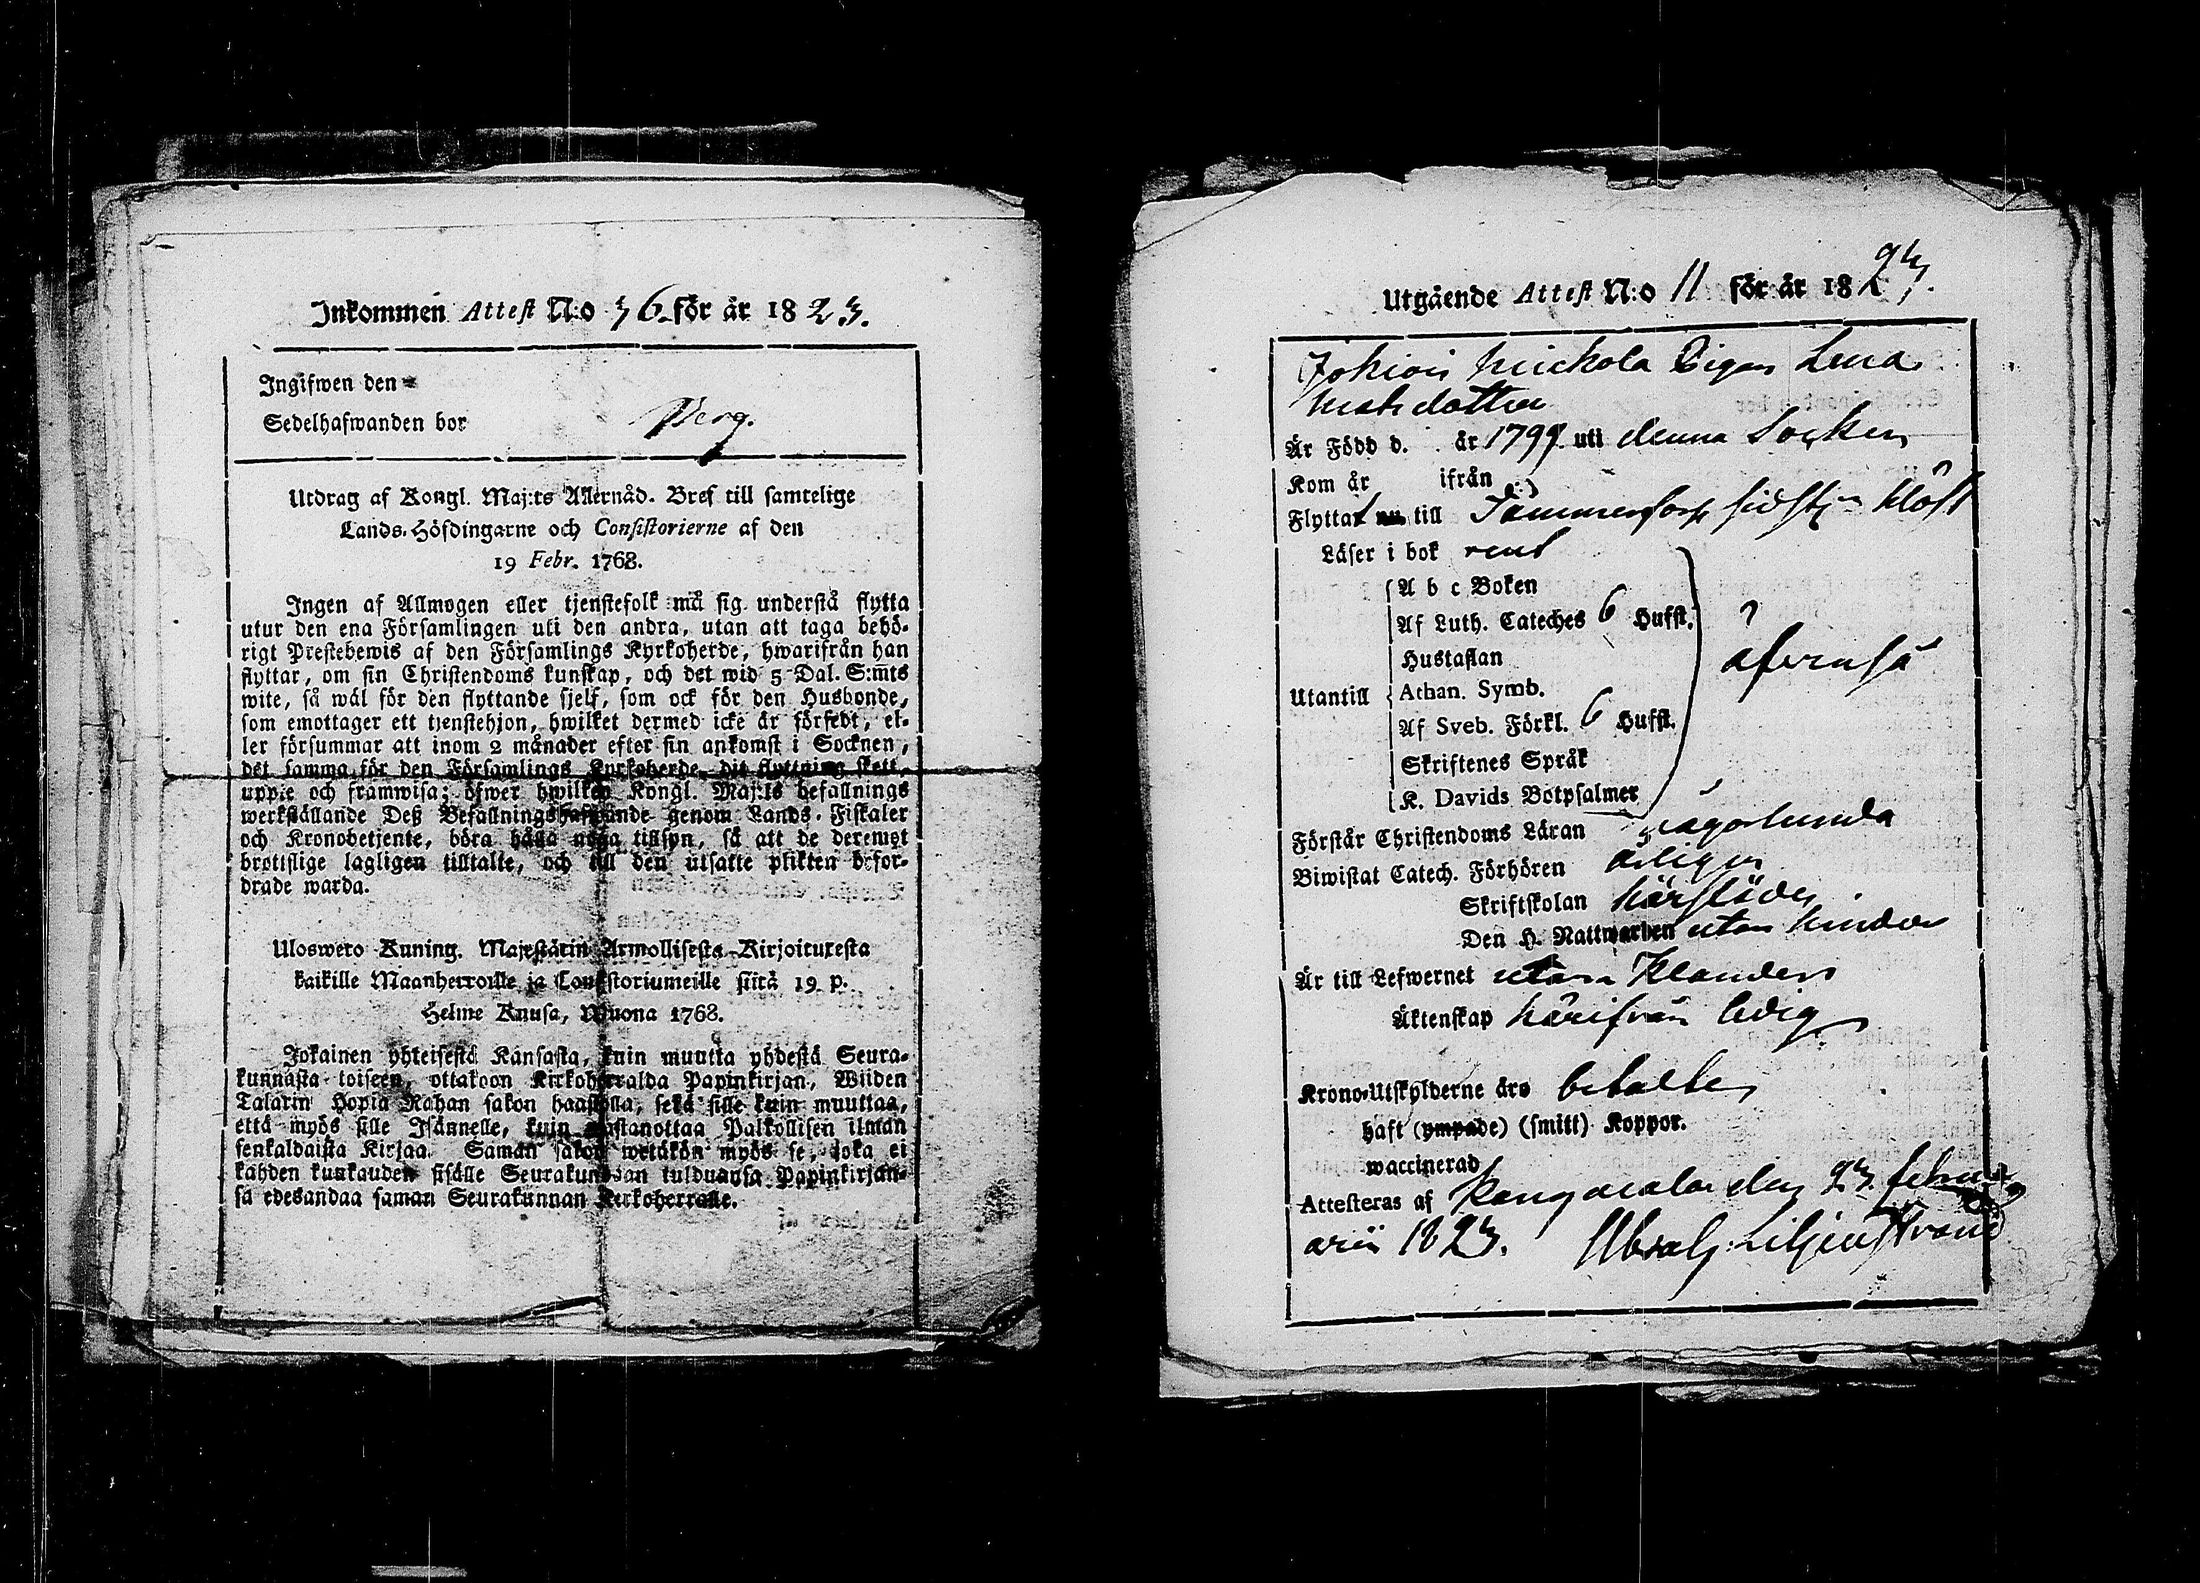 Inkommen Attest N:o 36 för år 1823.
Ingifwen den
Sedelhafwanden bor
Utdrag af Kongl. Maj:ts Allernåd. Bref till samtelige
Lands-Höfdingarne och Consistorierne af den
19 Febr. 1768.
Ingen af Allmogen eller tjenstefolk må sig understå flytta
utur den ena Församlingen uti den andra, utan att taga behö-
rigt Prestebewis af den Församlings Kyrkoherde, hwarifrån han
flyttar, om sin Christendoms kunskap, och det wid 5 Dal. S:mts
wite, så wäl för den flyttande sjelf, som ock för den Husbonde,
som emottager ett tjenstehjon, hwilket dermed icke är försedt, el-
ler försummar att inom 2 månader efter sin ankomst i Socknen,
det samma för den Församlings Kyrkoherde, dit flyttning skett,
uppte och framwisa; öfwer hwilken Kongl. Maj:ts befallnings
werkställande Deß Befallningshafwande genom Lands-Fiskaler
och Kronobetjente, böra hålla noga tillsyn, så att de deremot
brottslige lagligen tilltalte, och till den utsatte plikten befor-
drade warda.
Ulosweto Kuning. Majestätin Armollisesta Kirjoituxesta
kaikille Maanherroille ja Consistoriumeille siitä 19 p.
Helme Kuusa, Wuona 1768.
Jokainen yhteisestä Kansasta, kuin muutta yhdestä Seura-
kunnasta toiseen, ottakoon Kirkoherralda Papinkirjan, Wiiden
Talarin Hopia Rahan sakon haastolla, sekä sille kuin muuttaa,
että myös sille Isännelle, kuin wastanottaa Palkollisen ilman
senkaldaista Kirjaa. Saman sakon wetäkön myös se, joka ei
kahden kuukauden sisälle Seurakundaan tulduansa Papinkirjan-
sa edesandaa saman Seurakunnan Kirkoherralle.
Utgående Attest N:o 11 för år 1823.
Jokiois Pigan Lena
Matsdotter
Är Född d. år 1799 uti denna Socken
Kom år ifrån
Flyttar nu till Tammerfors
Läser i bok rent
A b c Boken
Af Luth. Cateches 6 Hufst.
Hustaflan
Utantill Athan. Symb. äfvenså
Af Sveb. Förkl. 6 Hufst.
Skriftenes Språk
K. Davids Botpsalmer
Förstår Christendoms Läran någorlunda
Biwistat Catech. Förhören årligen
Skriftskolan härstädes
Den H. Nattwarden utan hinder
Är till Lefwernet utan klander
Äktenskap härifrån ledig
Krono-Utskylderne äro betalte
haft (ympade) (smitt) Koppor.
waccinerad
Attesteras af Kangasala den 23 Febru-
arii 1823. Liljenstrand